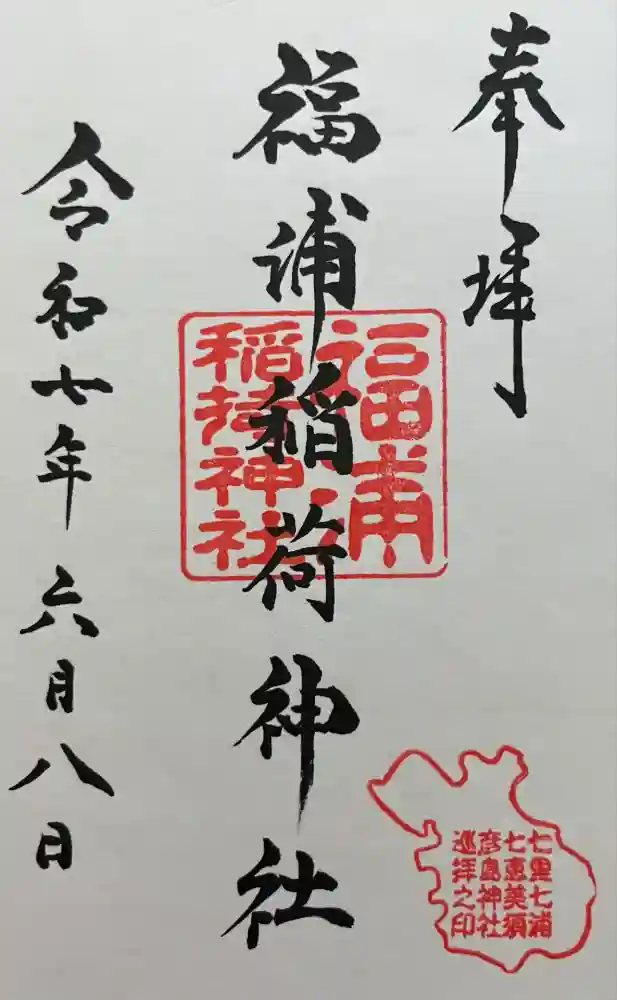 奉拝
福浦稲荷神社
令和七年六月八日
福浦
稲荷神社
七里七浦
七恵美須
彦島神社
巡拝之印